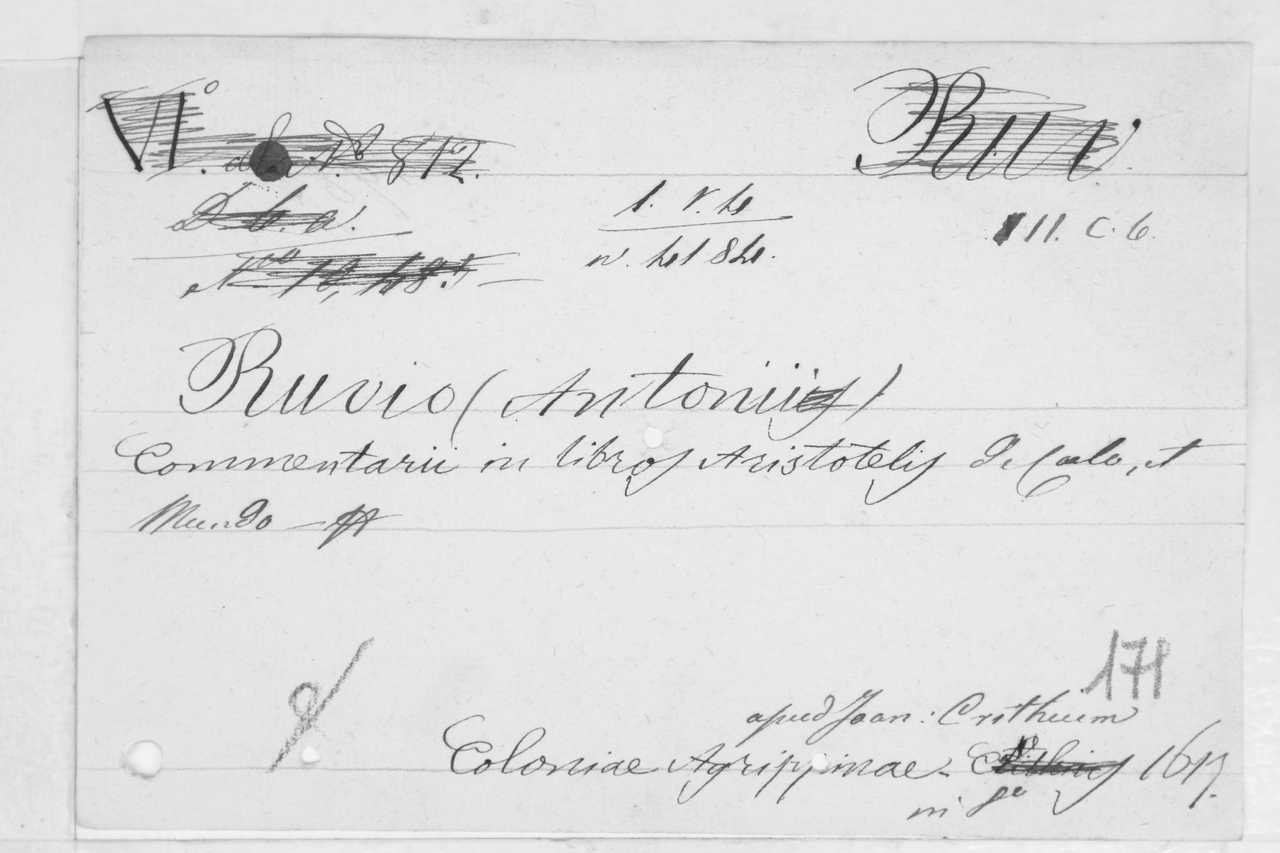 VI.° N.° 812. Ruv.
D. b. a.
1. v. 4
11. C. 6.
N.° 18,
n. 4184.
Ruvio (Antonii)
Commentarii in libros Aristotelis de Cœlo, et
Mundo —
171
apud Joan: Crithium
Coloniae Agrippinae - 1617.
in 8°